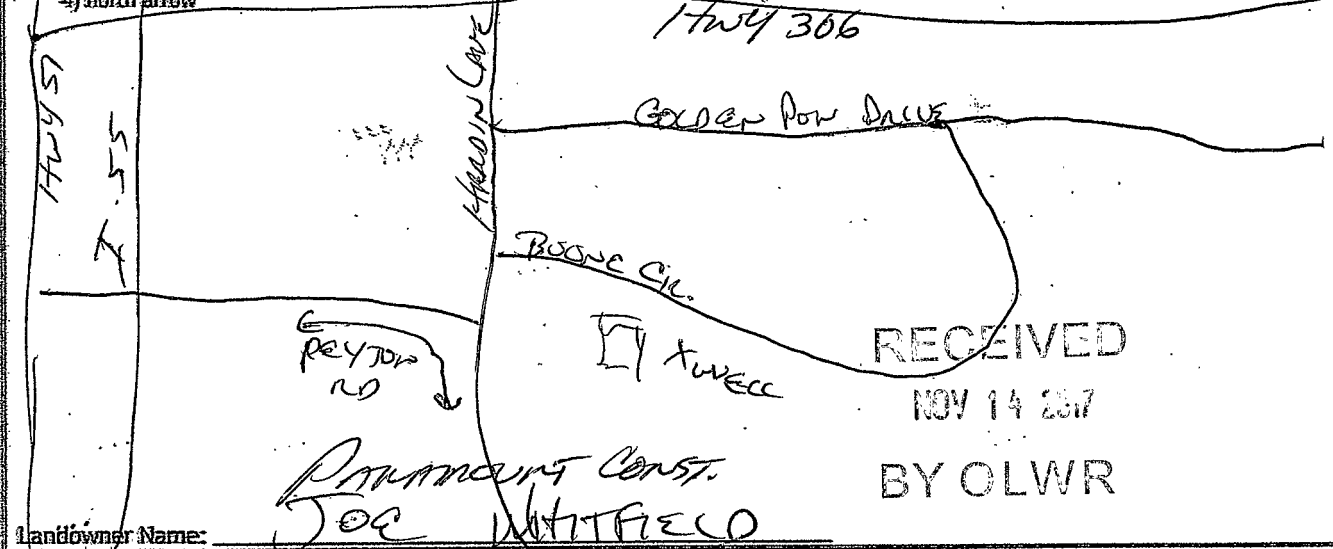 4) north arrow
HWY 306
HWY 51
I-55
HARDIN LANE
GOLDEN POW DRIVE
BOONE CIR.
PEYTON
RD
X WELL
RECEIVED
NOV 14 2017
BY OLWR
PARAMOUNT CONST.
Landowner Name: JOE WHITFIELD